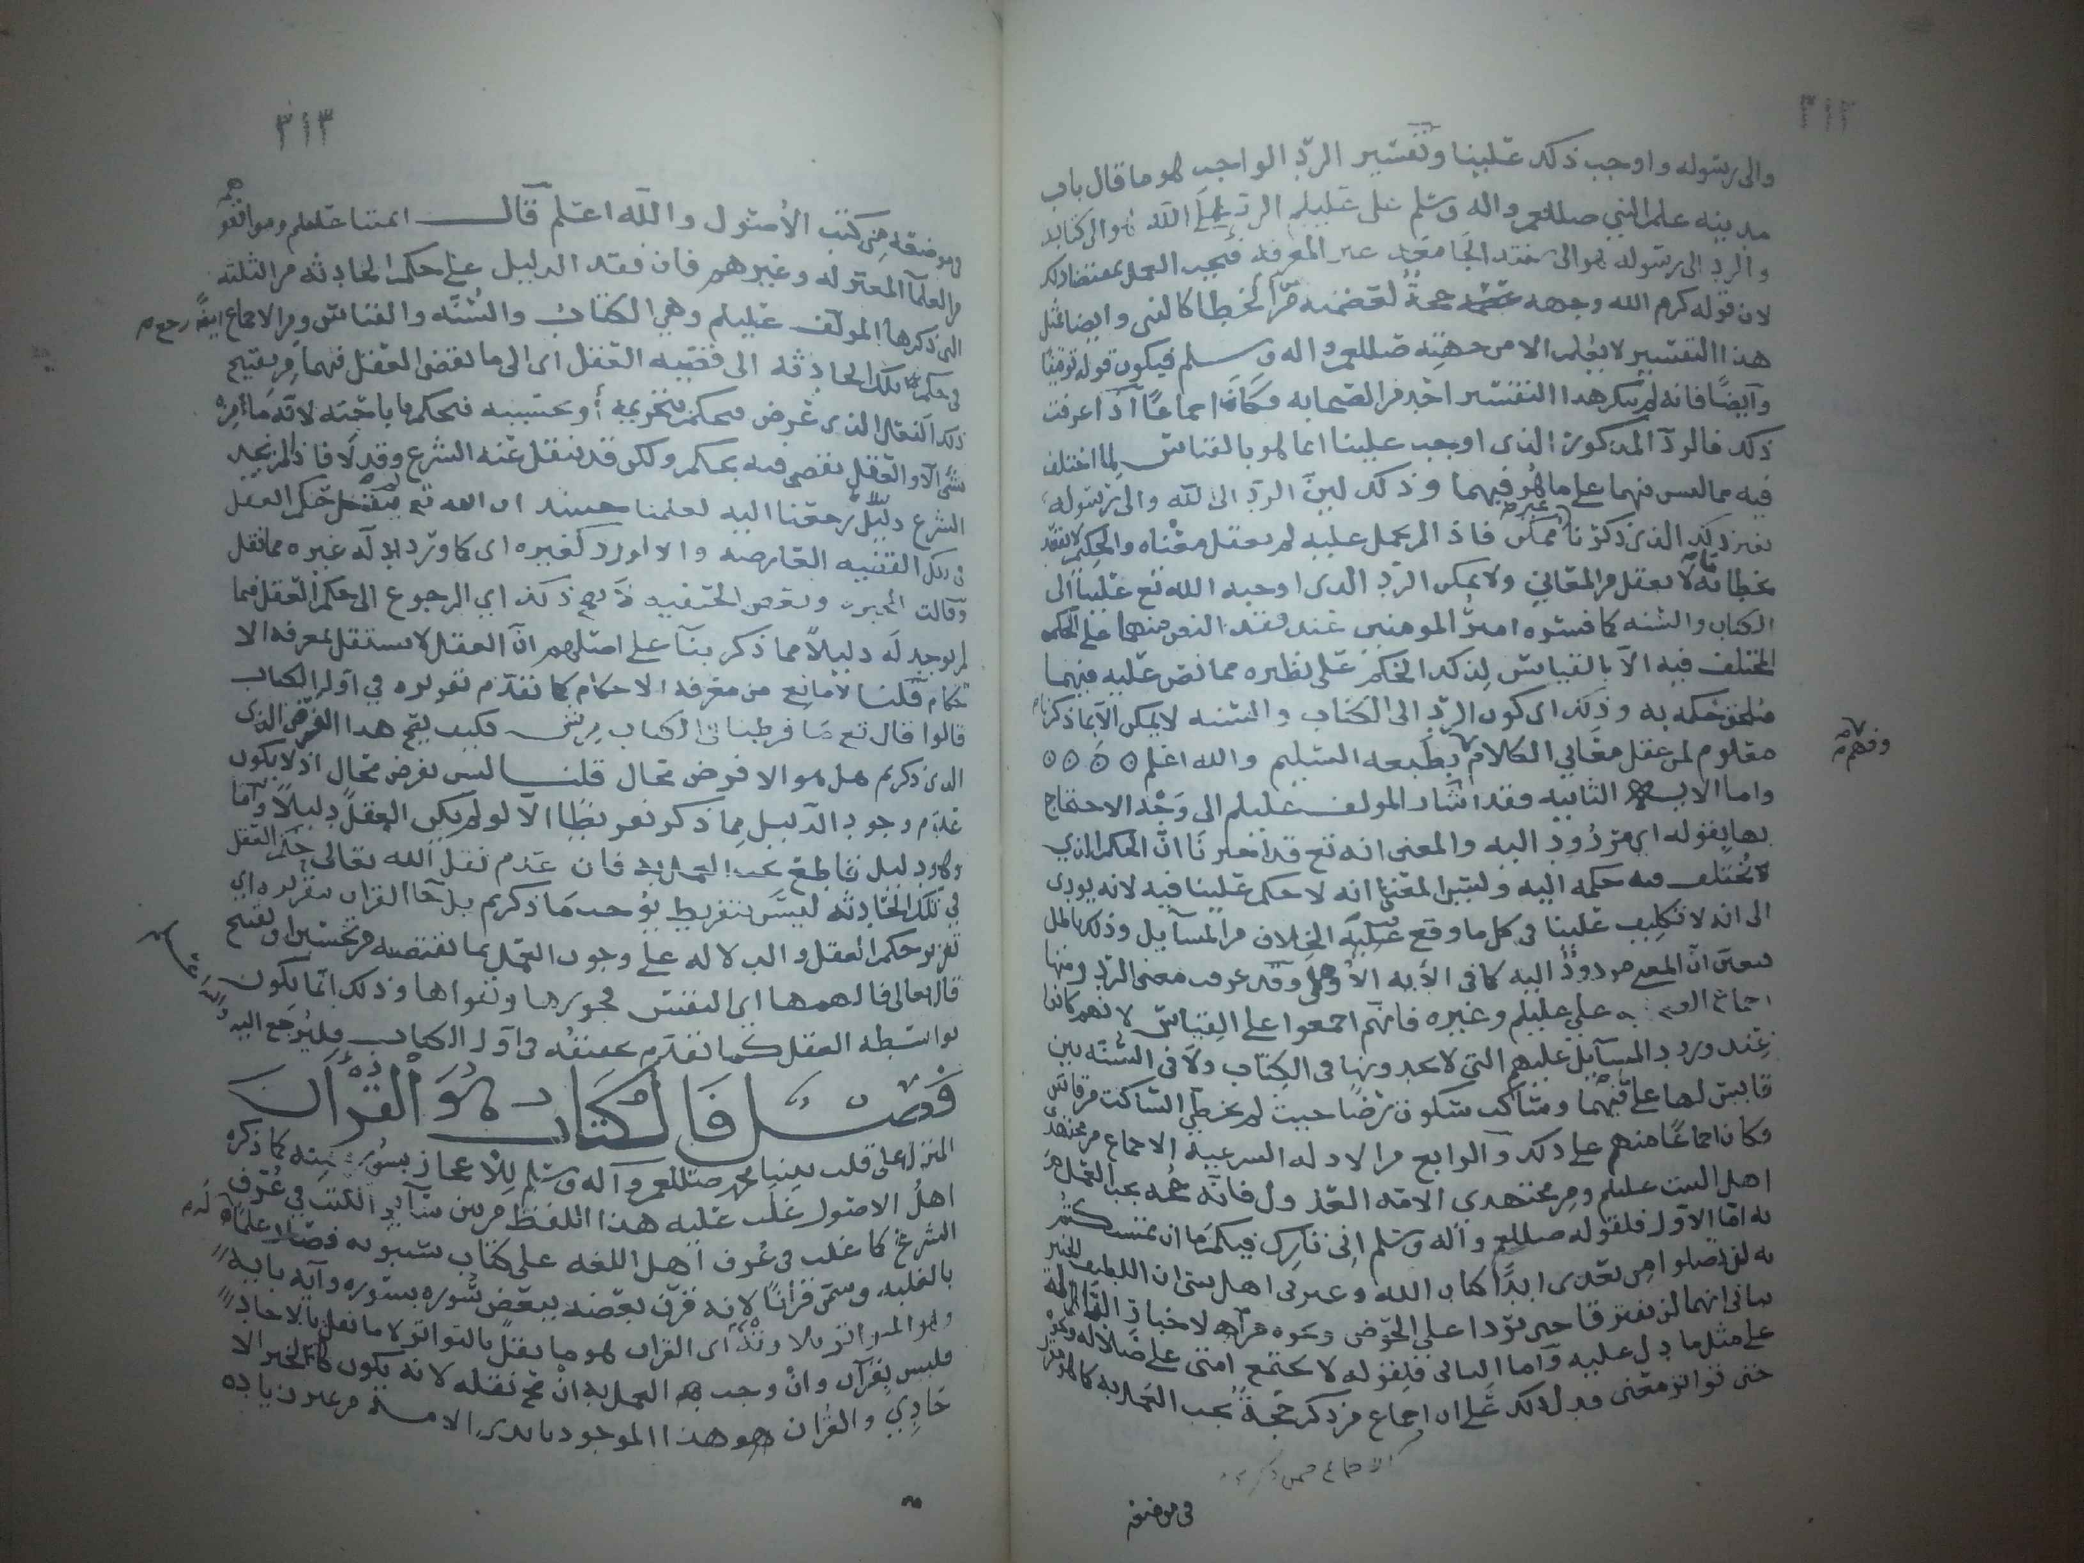 ٣١٢
والى رسوله واوجب ذلك علينا وتفسير الردّ الواجب هو ما قال باب
مدينه علم النبي صللعم واله وسلم على عليلم الردّ الى الله هو الى كتابه
والرد الى رسوله هو الى سنته الجامعه غير المفرقه فيجب العمل بمقتضا ذلك
لان قوله كرم الله وجهه حجةٌ لعصمته من الخطا كالنبى وايضا مثل
هذا التفسير لا يقال الا من جهته صللعم واله وسلم فيكون قوله توقيفا
وايضًا فانه لم ينكر هذا التفسير احد من الصحابه فكان اجماعًا اذا عرفت
ذلك فالردّ المذكور الذى اوجب علينا انما هو بالقياس لما اختلف
فيه مما ليس فيهما على ما هو فيهما وذلك لان الردّ الى الله والى رسوله
بغير ذلك الذى ذكرنا غير ممكن فاذ لم يحمل عليه لم يعقل معناه والحكيم لا يتعبد
بخطابه ما لا يعقل من المعانى ولا يمكن الردّ الذى اوجبه الله تع علينا الى
الكتاب والسنه كما فسره امير المومنين عند فقد النص منهما على الحكم
المختلف فيه الا بالقياس لذلك الحكم على نظيره مما نص عليه فيهما
فيلحق حكمه به وذلك اى كون الردّ الى الكتاب والسنه لا يمكن الا بما ذكرنا
معلوم لمن عقل معانى الكلام وفهم بطبعه السليم والله اعلم ٥ ٥ ٥ ٥
وفهم
واما الايه الثانيه فقد اشار المولف عليلم الى وجه الاحتجاج
بها بقوله اي مردُودٌ اليه والمعنى انه تع قد اخبرنا ان الحكم الذى
يختلف فيه حكمه اليه وليس المعنى انه لا حكم علينا فيه لانه يودى
الى انه لا تكليف علينا فى كل ما وقع عليه الخلاف من المسايل وذلك باطل
فتعين انّ المعنى مردودٌ اليه كما فى الايه الاولى وقد عرفت معنى الردّ ومنها
اجماع على عليلم وغيره فانهم اجمعوا على القياس لانهم كانوا
عند ورود المسايل عليهم التى لا يجدونها فى الكتاب ولا فى السنّه بين
قايس لها على ما فيهما وساكت سكون رضًا حيث لم يخطّي الساكت من قاس
فكان اجماعًا منهم على ذلك والرابع من الادله الشرعيه الاجماع من مجتهدى
اهل البيت عليلم ومن مجتهدى الامه العدول فانّه حجه يجب العمل
به امّا الاوّل فلقوله صللعم واله وسلم انى تارك فيكم ما ان تمسكتم
به لن تضلوا من بعدى ابدًا كتاب الله وعترتى اهل بيتى ان اللطيف الخبير
نبانى انهما لن يفترقا حتى يردا علي الحوض ونحوه من الاخبار الدالة
على مثل ما دل عليه واما الثانى فلقوله لا تجتمع امتى على ضلاله ونحوه
حتى تواتر معنى فدل ذلك على ان اجماع من ذكر حجةٌ يجب العمل به كما هو مقرر
الاجماع ممن ذكر
فى موضعه
٣١٣
فى موضعه من كتب الأصول والله اعلم قال ائمتنا عليلم وموافقوهم
من العلما المعتزله وغيرهم فان فقد الدليل على حكم الحادثه من الثلثه
التى ذكرها المولف عليلم وهي الكتاب والسُنّه والقياس ومن الاجماع ايضًا رجع
فى حكم تلك الحادثه الى قضيه العقل اى الى ما يقضى العقل فيهما من تقبيح
ذلك الفعل الذى عرض فيحكم بتحريمه أو تحسينه فيحكم باباحته لانه ما من
شى الا والعقل يقضى فيه بحكم ولكن قد ينقل عنه الشرع وقد لا فاذ لم نجد
الشرع دليلٌ رجعنا اليه لعلمنا حينئذ ان الله تع لم ينقل حكم العقل
فى تلك القضيه العارضه والا لورد كغيره اى كما ورد ادله غيره مما نقل
وقالت المجبره وبعض الحنفيه لا يصح ذلك اي الرجوع الى حكم العقل فيما
لم يوجد له دليلاً مما ذكر بنآ على اصلهم انّ العقل لا يستقل بمعرفه الا
حكام قلنا لا مانع من معرفه الاحكام كما تقدم تقريره في اول الكتاب
قالوا قال تع ما فرطنا فى الكتاب من شى فكيف يصح هذا الفرض الذى
الذى ذكرتم هل هو الا فرض محال قلنا ليس بفرض محال اذ لا يكون
عدم وجود الدليل مما ذكر تفريطا الا لو لم يكن العقل دليلاً واما
وهو دليل قاطع يجب العمل به فان عدم نقل الله تعالى حكم العقل
في تلك الحادثه ليس بتفريط يوجب ما ذكرتم بل جا القران بتقريره اي
تقرير حكم العقل والدلاله على وجوب العمل بما تقتضيه من تحسين او تقبيح
قال تعالى فالهمها اي النفس فجورها وتقواها وذلك انّما يكون
بواسطه العقل كما تقدم تحقيقه فى اول الكتاب فليُرجع اليه والله اعلم
فصل فالكتاب هُوَ القرآن
المنزل على قلب نبينا محمد صللعم وآله وسلم للاعجاز بسُوره منه كما ذكره
اهلُ الاصول غلب عليه هذا اللفظ من بين سآير الكتب في عُرف
الشرع كما غلب فى عُرف اهل اللغه على كتاب سيبويه فصار علمًا له
بالغلبه وسمّى قرآنًا لانه قرن بعضه ببعض سُوره بسوره وآيه بايه
وهو المتواتر تلاوتهُ اى القران هو ما نقل بالتواتر لا ما نقل بالاحاد
فليس بقرآن وانْ وجب العمل به انْ صح نقله لانه يكون كالخبر الا
حَادِي والقُران هو هذا الموجود بايدى الامـه من غير زياده